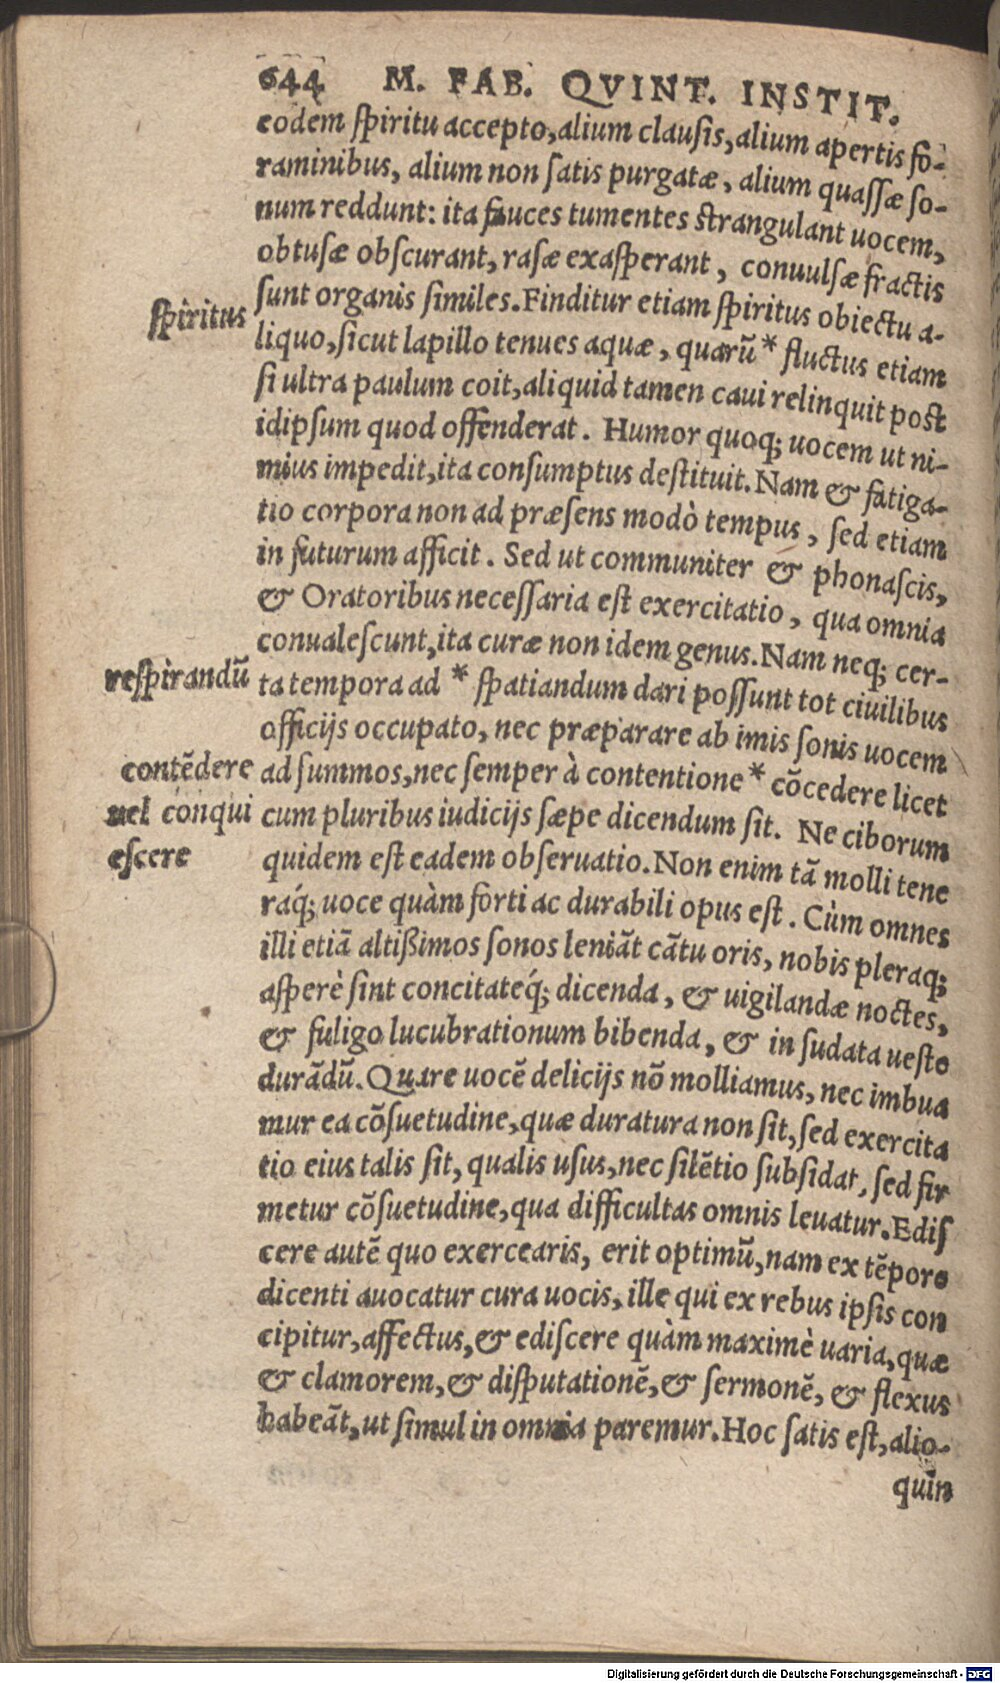 644 M. FAB. QVINT. INSTIT.
eodem ſpiritu accepto, alium clauſis, alium apertis fo-
raminibus, alium non ſatis purgatæ, alium quaſſæ ſo-
num reddunt: ita fauces tumentes ſtrangulant uocem,
obtuſæ obſcurant, raſæ exaſperant, conuulſæ fractis
ſunt organis ſimiles. Finditur etiam ſpiritus obiectu a-
ſpiritus
liquo, ſicut lapillo tenues aquæ, quarũ * fluctus etiam
ſi ultra paulum coit, aliquid tamen caui relinquit poſt
idipſum quod offenderat. Humor quoq; uocem ut ni-
mius impedit, ita conſumptus deſtituit. Nam & fatiga-
tio corpora non ad præſens modò tempus, ſed etiam
in futurum afficit. Sed ut communiter & phonaſcis,
& Oratoribus neceſſaria eſt exercitatio, qua omnia
conualeſcunt, ita curæ non idem genus. Nam neq; cer-
reſpirandũ
ta tempora ad * ſpatiandum dari poſſunt tot ciuilibus
officijs occupato, nec præparare ab imis ſonis uocem
contẽdere
ad ſummos, nec ſemper à contentione * cõcedere licet
uel conqui
cum pluribus iudicijs ſæpe dicendum ſit. Ne ciborum
eſcere
quidem eſt eadem obſeruatio. Non enim tã molli tene
raq́; uoce quàm forti ac durabili opus eſt. Cùm omnes
illi etiã altißimos ſonos leniãt cãtu oris, nobis pleraq;
aſperè ſint concitateq́; dicenda, & uigilandæ noctes,
& fuligo lucubrationum bibenda, & in ſudata ueſte
durãdũ. Quare uocẽ delicijs nõ molliamus, nec imbua
mur ea cõſuetudine, quæ duratura non ſit, ſed exercita
tio eius talis ſit, qualis uſus, nec ſilẽtio ſubſidat, ſed fir
metur cõſuetudine, qua difficultas omnis leuatur. Ediſ
cere autẽ quo exercearis, erit optimũ, nam ex tẽpore
dicenti auocatur cura uocis, ille qui ex rebus ipſis con
cipitur, affectus, & ediſcere quàm maximè uaria, quæ
& clamorem, & diſputationẽ, & ſermonẽ, & flexus
habeãt, ut ſimul in omnia paremur. Hoc ſatis eſt, alio-
quin
Digitalisierung gefördert durch die Deutsche Forschungsgemeinschaft - DFG